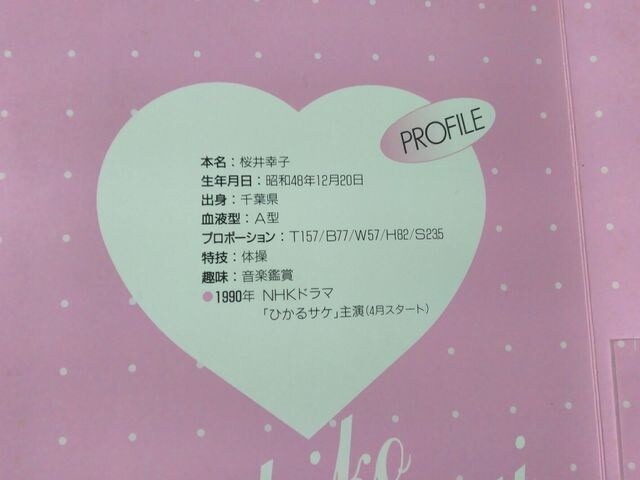 PROFILE
本名：桜井幸子
生年月日：昭和48年12月20日
出身：千葉県
血液型：A型
プロポーション：T157/B77/W57/H82/S23.5
特技：体操
趣味：音楽鑑賞
●1990年 NHKドラマ
「ひかるサケ」主演(4月スタート)